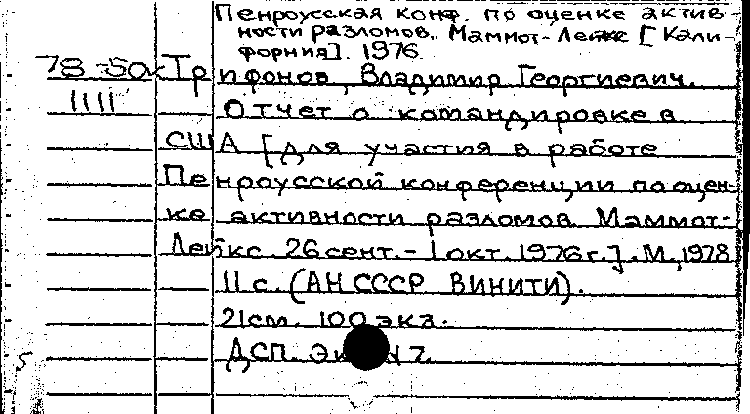 Пенроусская конф. по оценке актив-
ности разломов. Маммот-Лейкс [Кали-
форния]. 1976
78-50к Трифонов, Владимир Георгиевич.
1111 Отчет о командировке в
США [для участия в работе
Пенроусской конференции по оцен-
ке активности разломов. Маммот-
Лейкс. 26 сент. - 1 окт. 1976 г.]. М., 1978
11 с. (АН СССР ВИНИТИ).
21 см. 100 экз.
ДСП. 7.